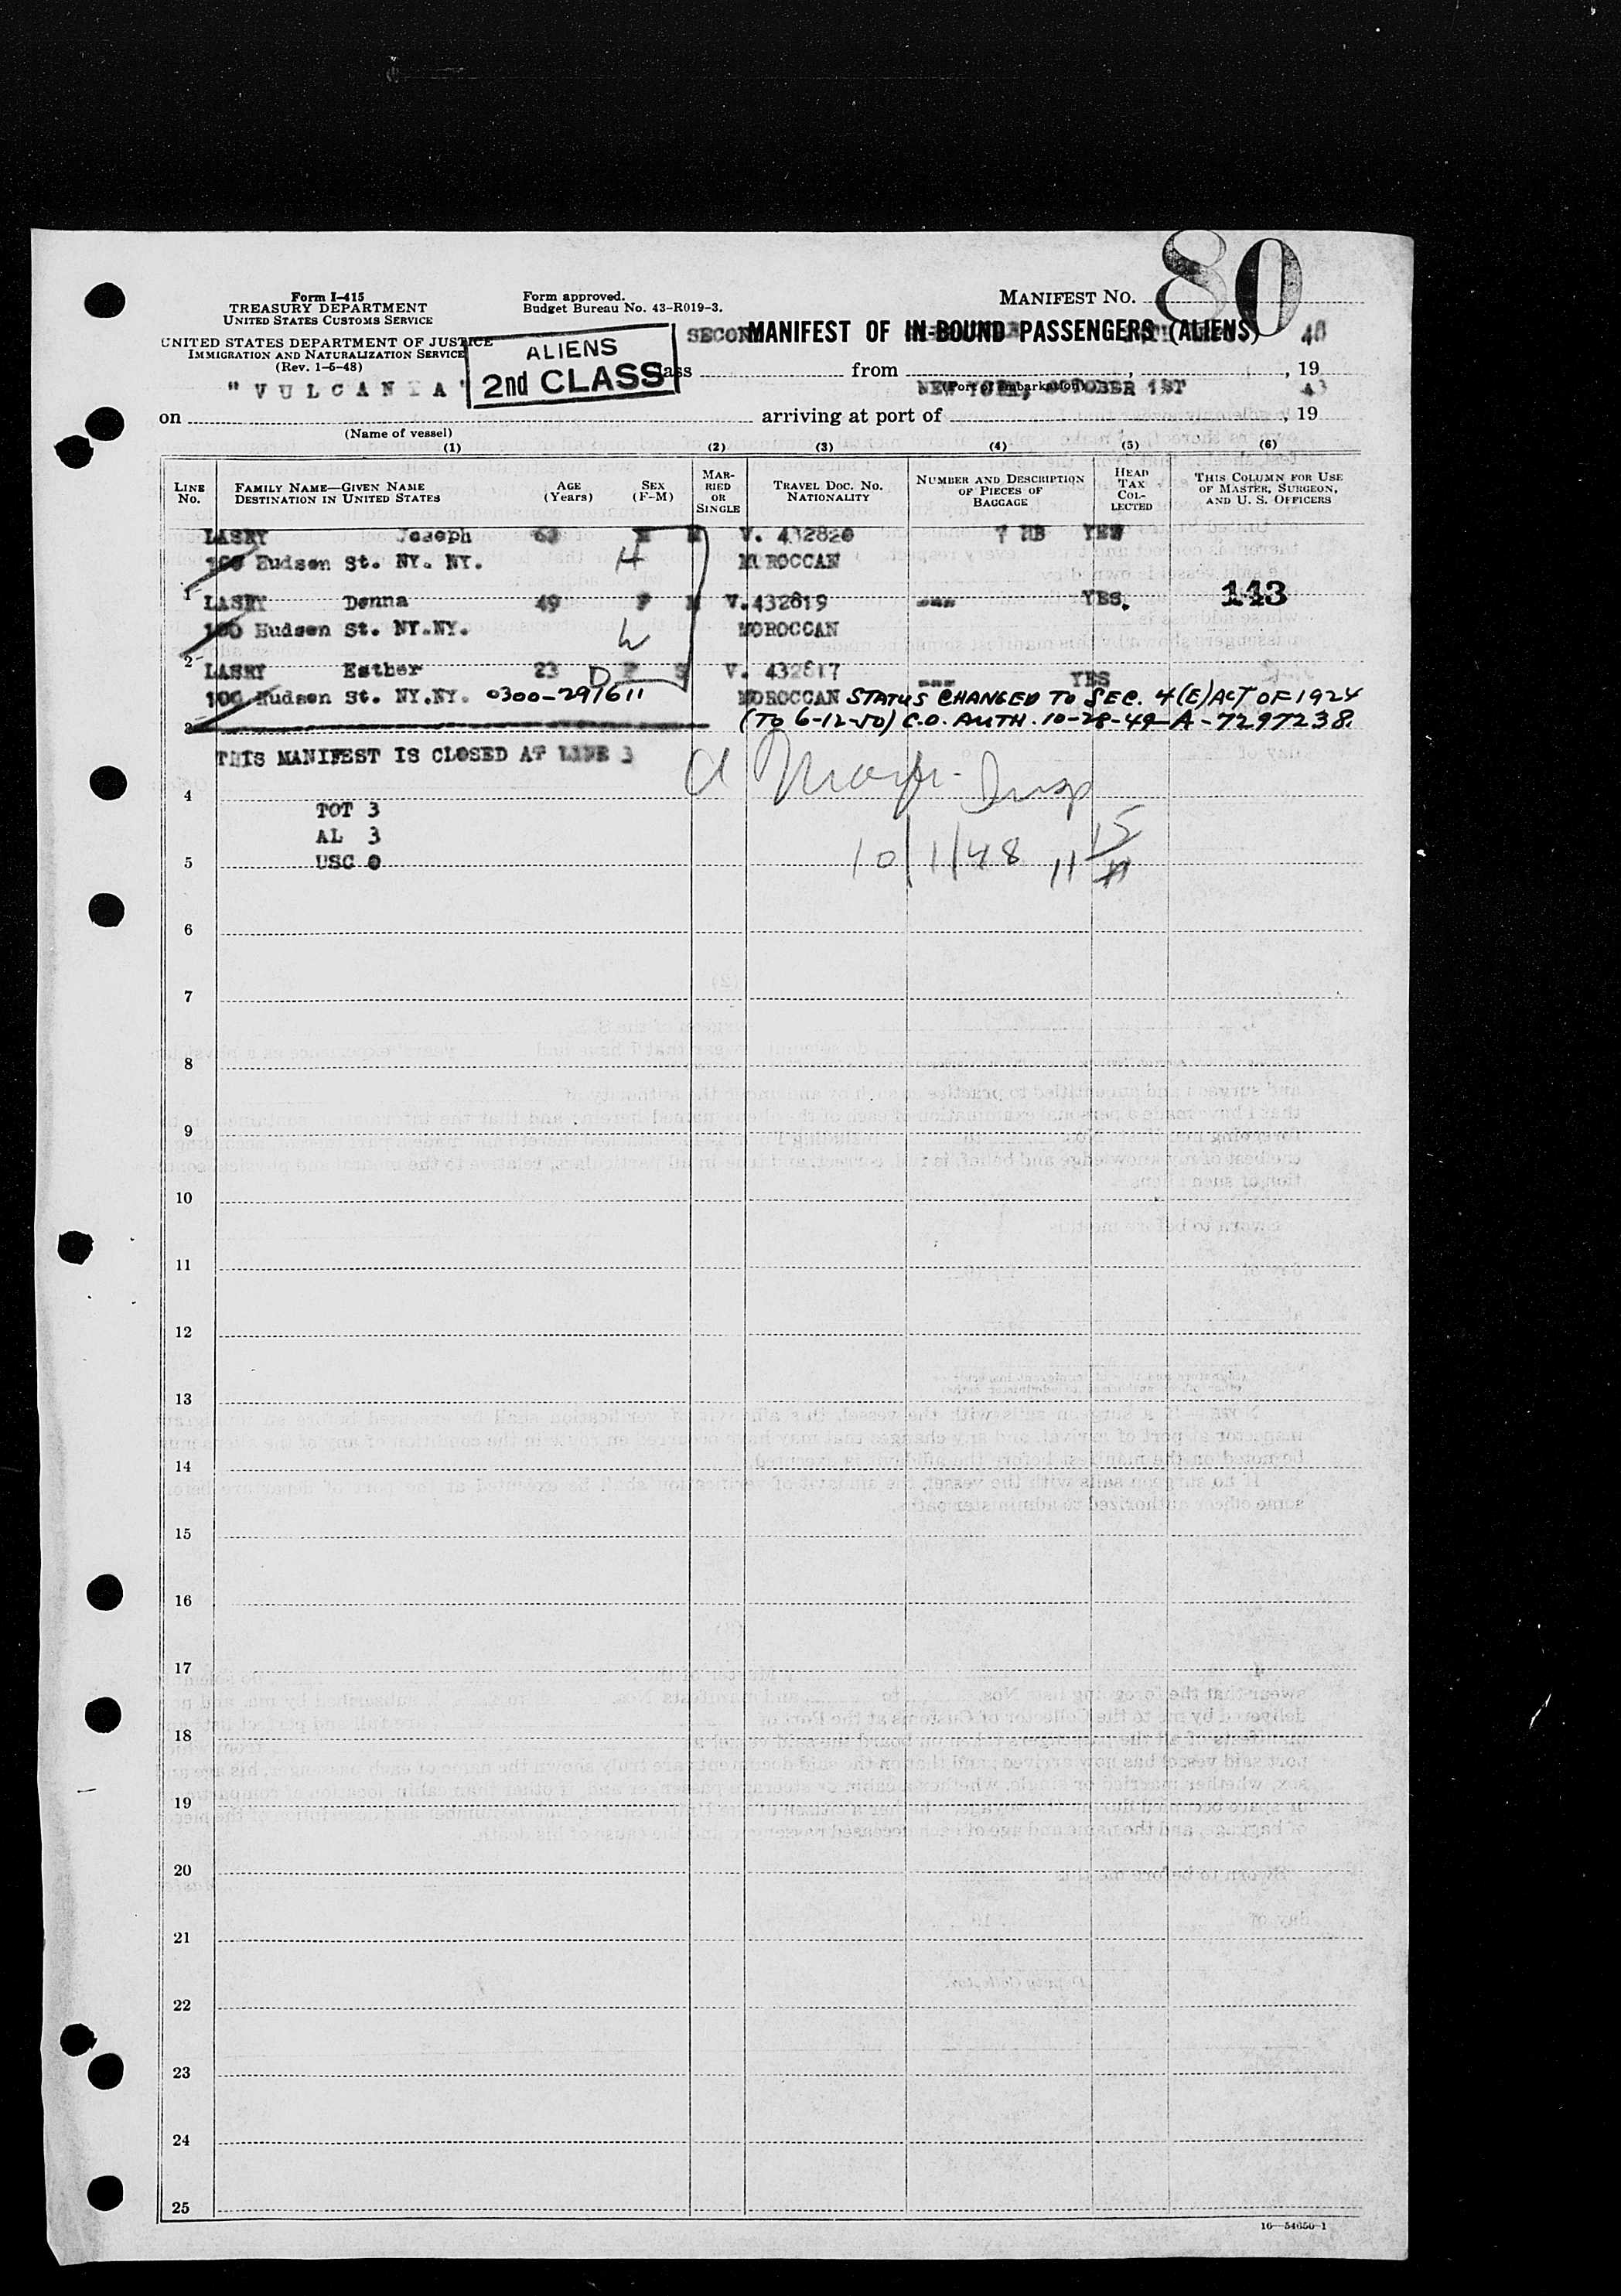 80
Form I-415
TREASURY DEPARTMENT
UNITED STATES CUSTOMS SERVICE
UNITED STATES DEPARTMENT OF JUSTICE
IMMIGRATION AND NATURALIZATION SERVICE
(Rev. 1-6-48)
Form approved.
Budget Bureau No. 43-R019-3.
MANIFEST NO.
ALIENS
2nd CLASS
MANIFEST OF IN-BOUND PASSENGERS (ALIENS)
from , , 19
(Port of embarkation)
"VULCANIA"
NEW YORK, OCTOBER 1ST
on arriving at port of , 19
(Name of vessel)
(1) (2) (3) (4) (5) (6)
LINE No.
FAMILY NAME—GIVEN NAME
DESTINATION IN UNITED STATES
AGE (Years)
SEX (F-M)
MARRIED OR SINGLE
TRAVEL DOC. NO.
NATIONALITY
NUMBER AND DESCRIPTION OF PIECES OF BAGGAGE
HEAD TAX COLLECTED
THIS COLUMN FOR USE OF MASTER, SURGEON, AND U. S. OFFICERS
LASRY Joseph M M V. 432820 7 HB YES
100 Hudson St. NY. NY. H MOROCCAN
1 LASRY Donna 49 F M V.432819 --- YES. 143
100 Hudson St. NY.NY. W MOROCCAN
2 LASRY Esther 23 D F S V. 432817 --- YES
100 Hudson St. NY.NY. 0300-291611 MOROCCAN STATUS CHANGED TO SEC. 4(E) ACT OF 1924
3 (TO 6-12-50) C.O. AUTH. 10-28-49-A-7297238.
THIS MANIFEST IS CLOSED AT LINE 3
Insp
4
TOT 3
AL 3
10/1/48 11 15
5 USC 0
6
7
8
9
10
11
12
13
14
15
16
17
18
19
20
21
22
23
24
25
16—54650-1